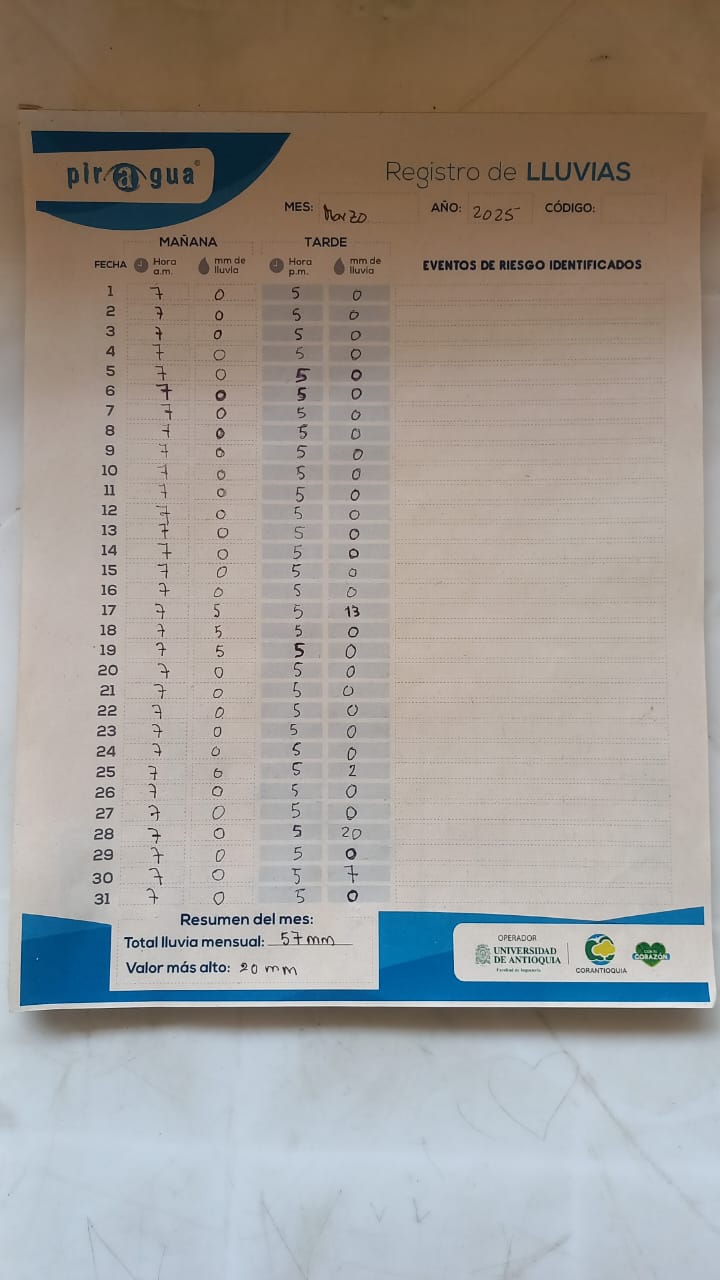 piragua®
Registro de LLUVIAS
MES: Marzo AÑO: 2025 CÓDIGO:
MAÑANA TARDE
FECHA Hora a.m. mm de lluvia Hora p.m. mm de lluvia EVENTOS DE RIESGO IDENTIFICADOS
1 7 0 5 0
2 7 0 5 0
3 7 0 5 0
4 7 0 5 0
5 7 0 5 0
6 7 0 5 0
7 7 0 5 0
8 7 0 5 0
9 7 0 5 0
10 7 0 5 0
11 7 0 5 0
12 7 0 5 0
13 7 0 5 0
14 7 0 5 0
15 7 0 5 0
16 7 0 5 0
17 7 5 5 13
18 7 5 5 0
19 7 5 5 0
20 7 0 5 0
21 7 0 5 0
22 7 0 5 0
23 7 0 5 0
24 7 0 5 0
25 7 0 5 2
26 7 0 5 0
27 7 0 5 0
28 7 0 5 20
29 7 0 5 0
30 7 0 5 7
31 7 0 5 0
Resumen del mes:
Total lluvia mensual: 57mm
Valor más alto: 20mm
OPERADOR
UNIVERSIDAD
DE ANTIOQUIA
Facultad de Ingeniería
CORANTIOQUIA
CORAZÓN